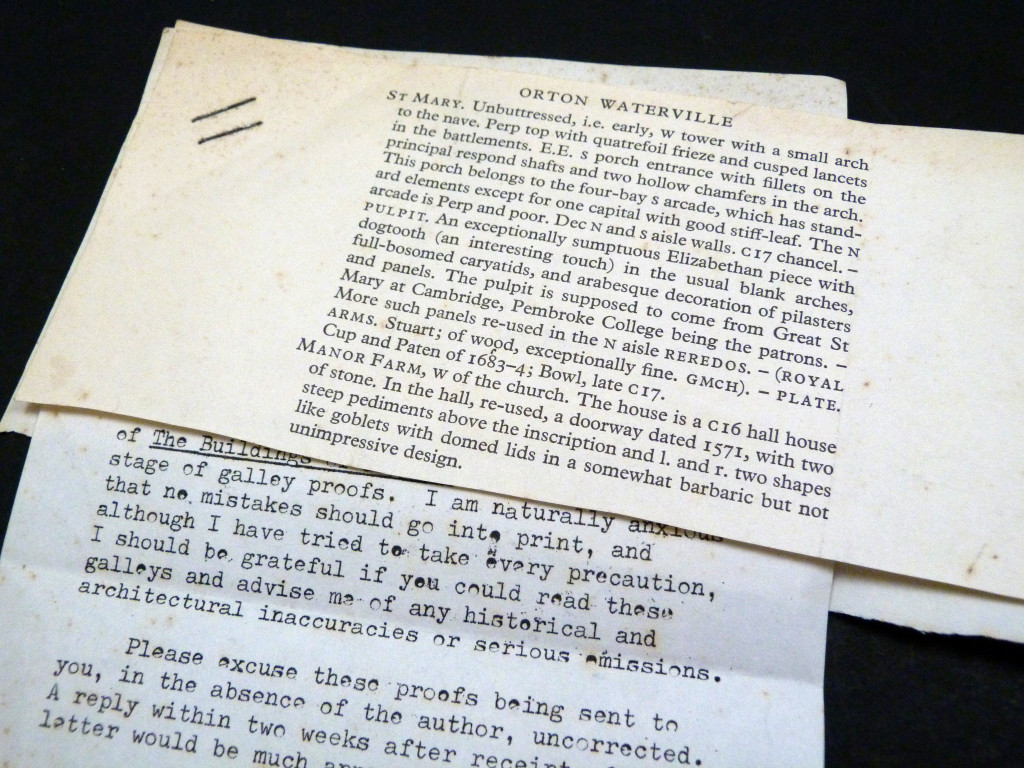 ORTON WATERVILLE
ST MARY. Unbuttressed, i.e. early, W tower with a small arch
to the nave. Perp top with quatrefoil frieze and cusped lancets
in the battlements. E.E. S porch entrance with fillets on the
principal respond shafts and two hollow chamfers in the arch.
This porch belongs to the four-bay S arcade, which has stand-
ard elements except for one capital with good stiff-leaf. The N
arcade is Perp and poor. Dec N and S aisle walls. C17 chancel. –
PULPIT. An exceptionally sumptuous Elizabethan piece with
dogtooth (an interesting touch) in the usual blank arches,
full-bosomed caryatids, and arabesque decoration of pilasters
and panels. The pulpit is supposed to come from Great St
Mary at Cambridge, Pembroke College being the patrons. –
More such panels re-used in the N aisle REREDOS. – (ROYAL
ARMS. Stuart; of wood, exceptionally fine. GMCH). – PLATE.
Cup and Paten of 1683–4; Bowl, late C17.
MANOR FARM, W of the church. The house is a C16 hall house
of stone. In the hall, re-used, a doorway dated 1571, with two
steep pediments above the inscription and l. and r. two shapes
like goblets with domed lids in a somewhat barbaric but not
unimpressive design.
of The Buildings
stage of galley proofs. I am naturally anxious
that no mistakes should go into print, and
although I have tried to take every precaution,
I should be grateful if you could read these
galleys and advise me of any historical and
architectural inaccuracies or serious omissions.
Please excuse these proofs being sent to
you, in the absence of the author, uncorrected.
A reply within two weeks after receipt
letter would be much